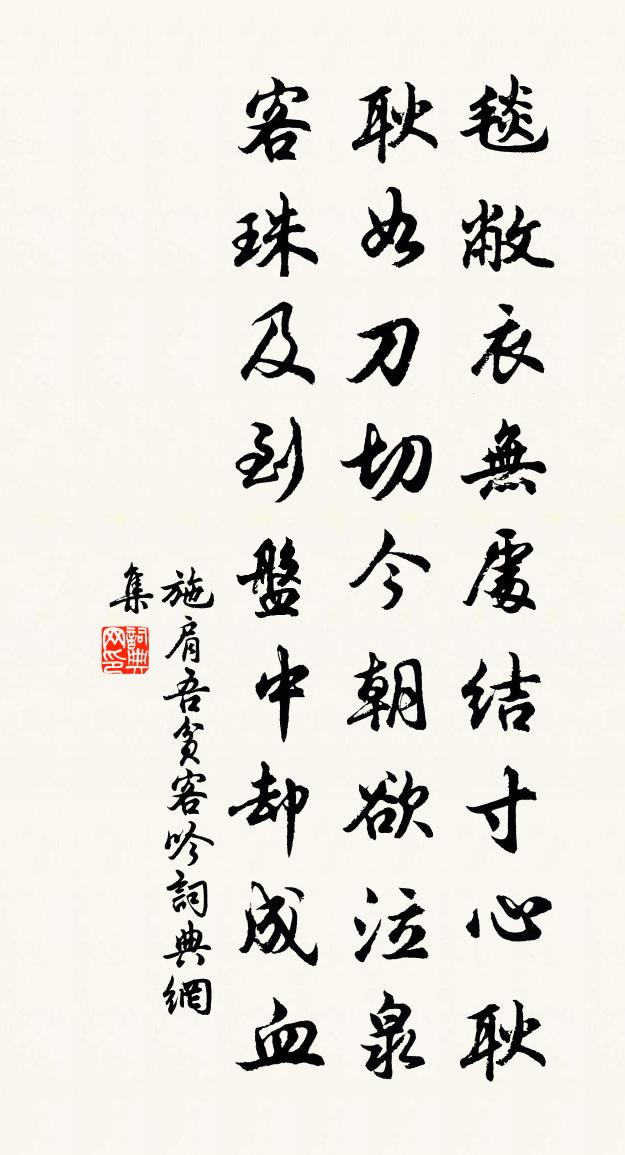 毯敝衣無處結寸心耿
耿如刀切今朝欲泣泉
客珠及到盤中却成血
施肩吾貧客吟詞典網
集
詞典
网印